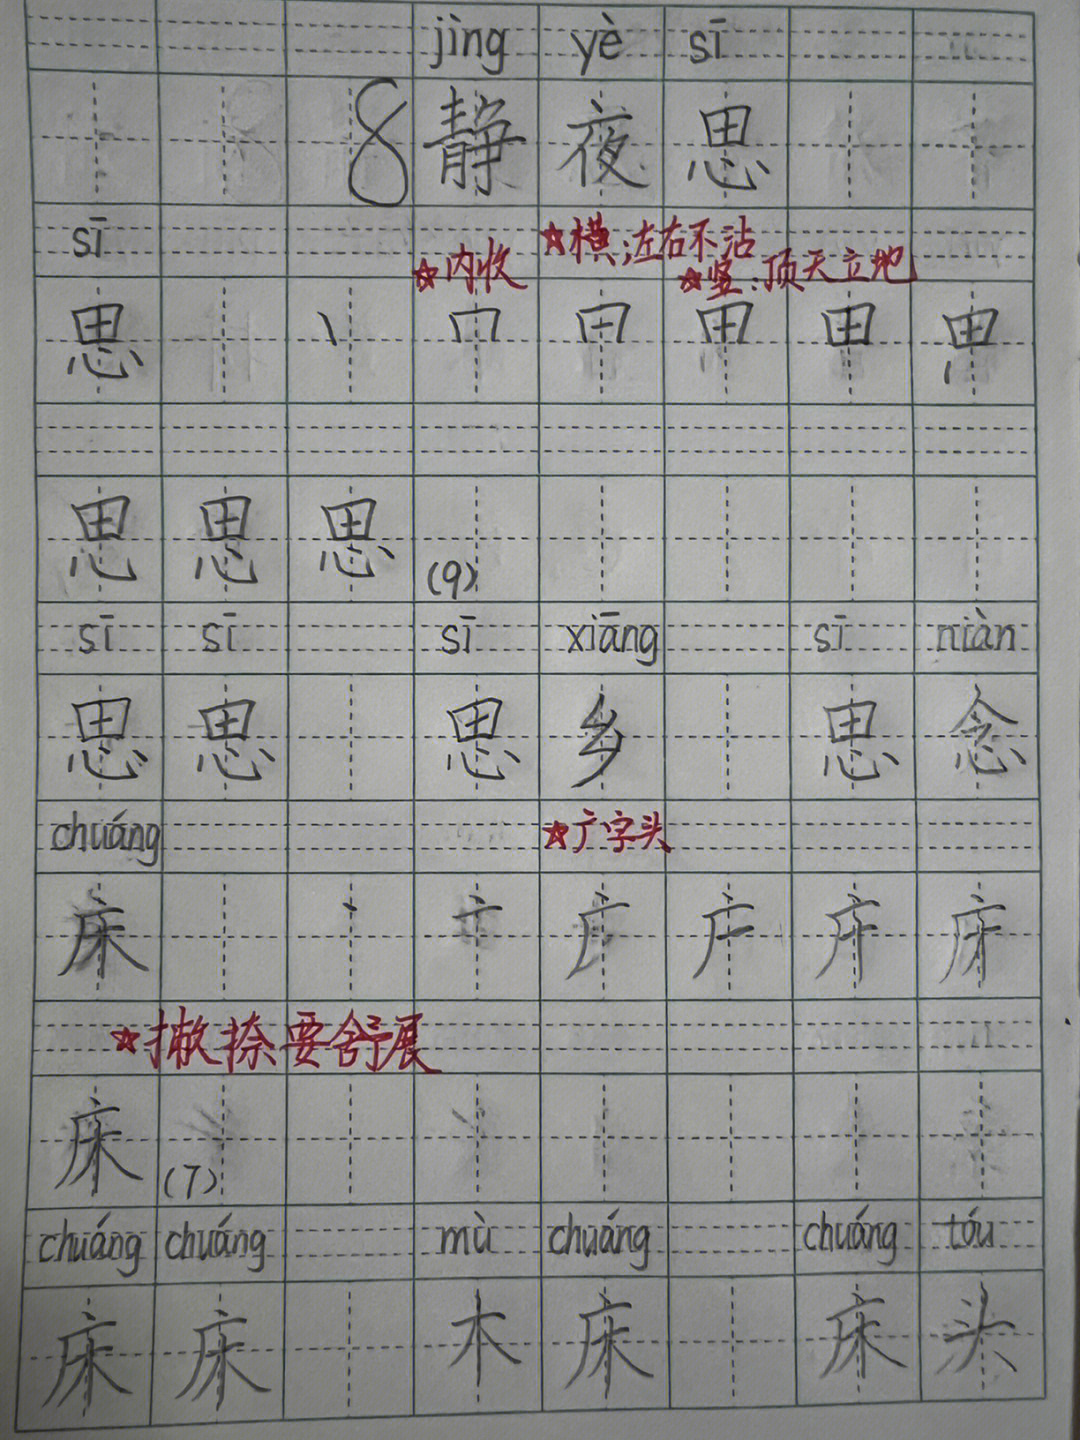 jìng yè sī
8 静 夜 思
sī ★内收 ★横:左右不沾 ★竖:顶天立地
思 丶 冂 日 田 田
思 思 思 (9)
sī sī sī xiāng sī niàn
思 思 思 乡 思 念
chuáng ★广字头
床 丶 亠 广
★撇捺要舒展
床 (7)
chuáng chuáng mù chuáng chuáng tóu
床 床 木 床 床 头